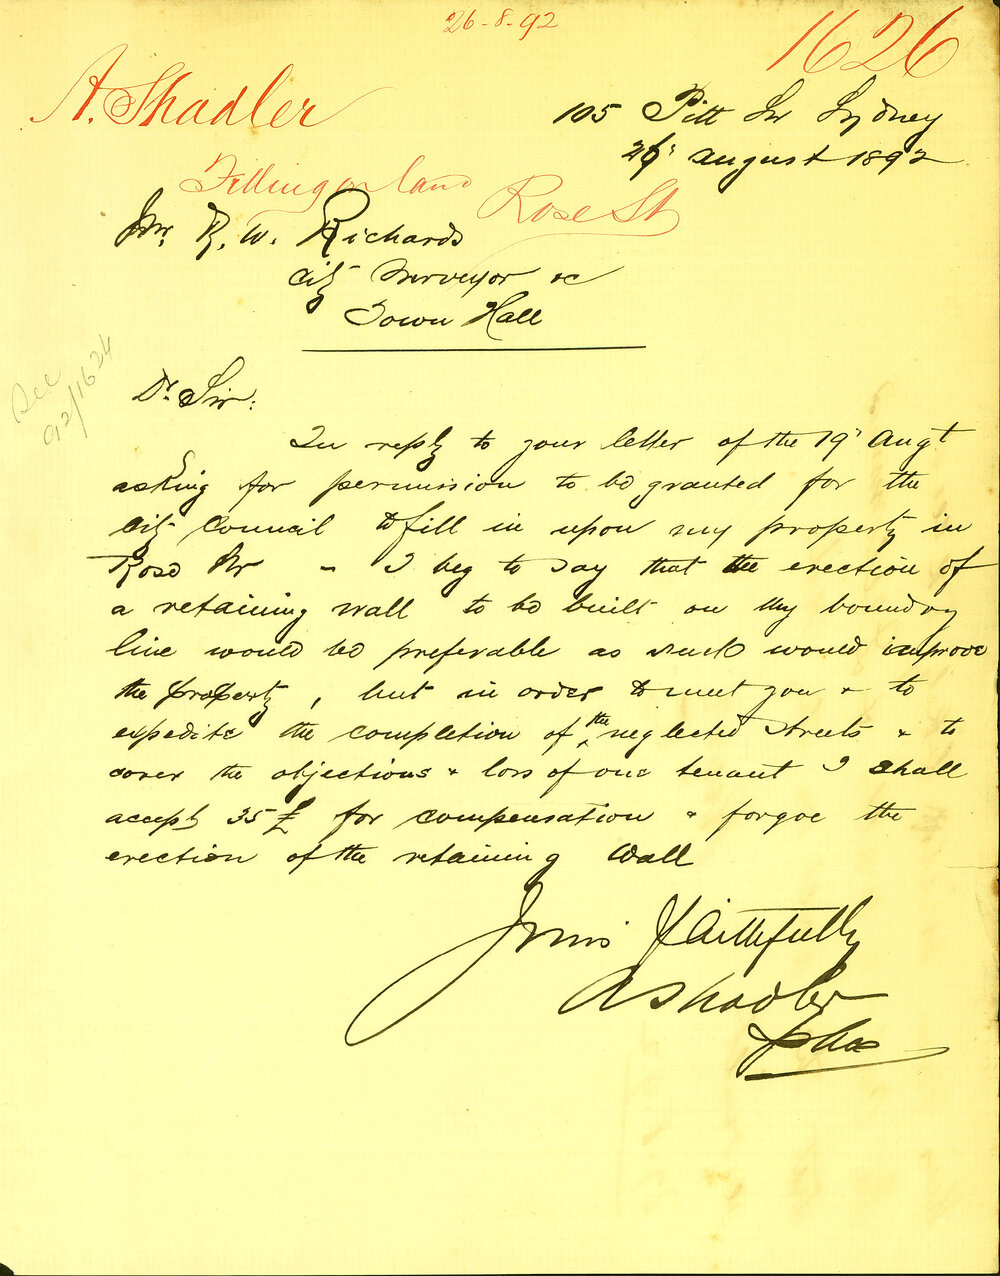 26-8-92
1626
A. Shadler
105 Pitt St Sydney
26 August 1892
Filling on land
Rose St
Mr. R. W. Richards
City Surveyor &c
Town Hall
See
92/1624
Dr. Sir:
In reply to your letter of the 19" Augt
asking for permission to be granted for the
City Council to fill in upon my property in
Rose Str - I beg to say that the erection of
a retaining wall to be built on my boundry
line would be preferable as such would improve
the property, but in order to meet you & to
expedite the completion of the neglected streets & to
cover the objections & loss of one tenant I shall
accept 35£ for compensation & forgoe the
erection of the retaining wall
Yours Faithfully
A Shadler